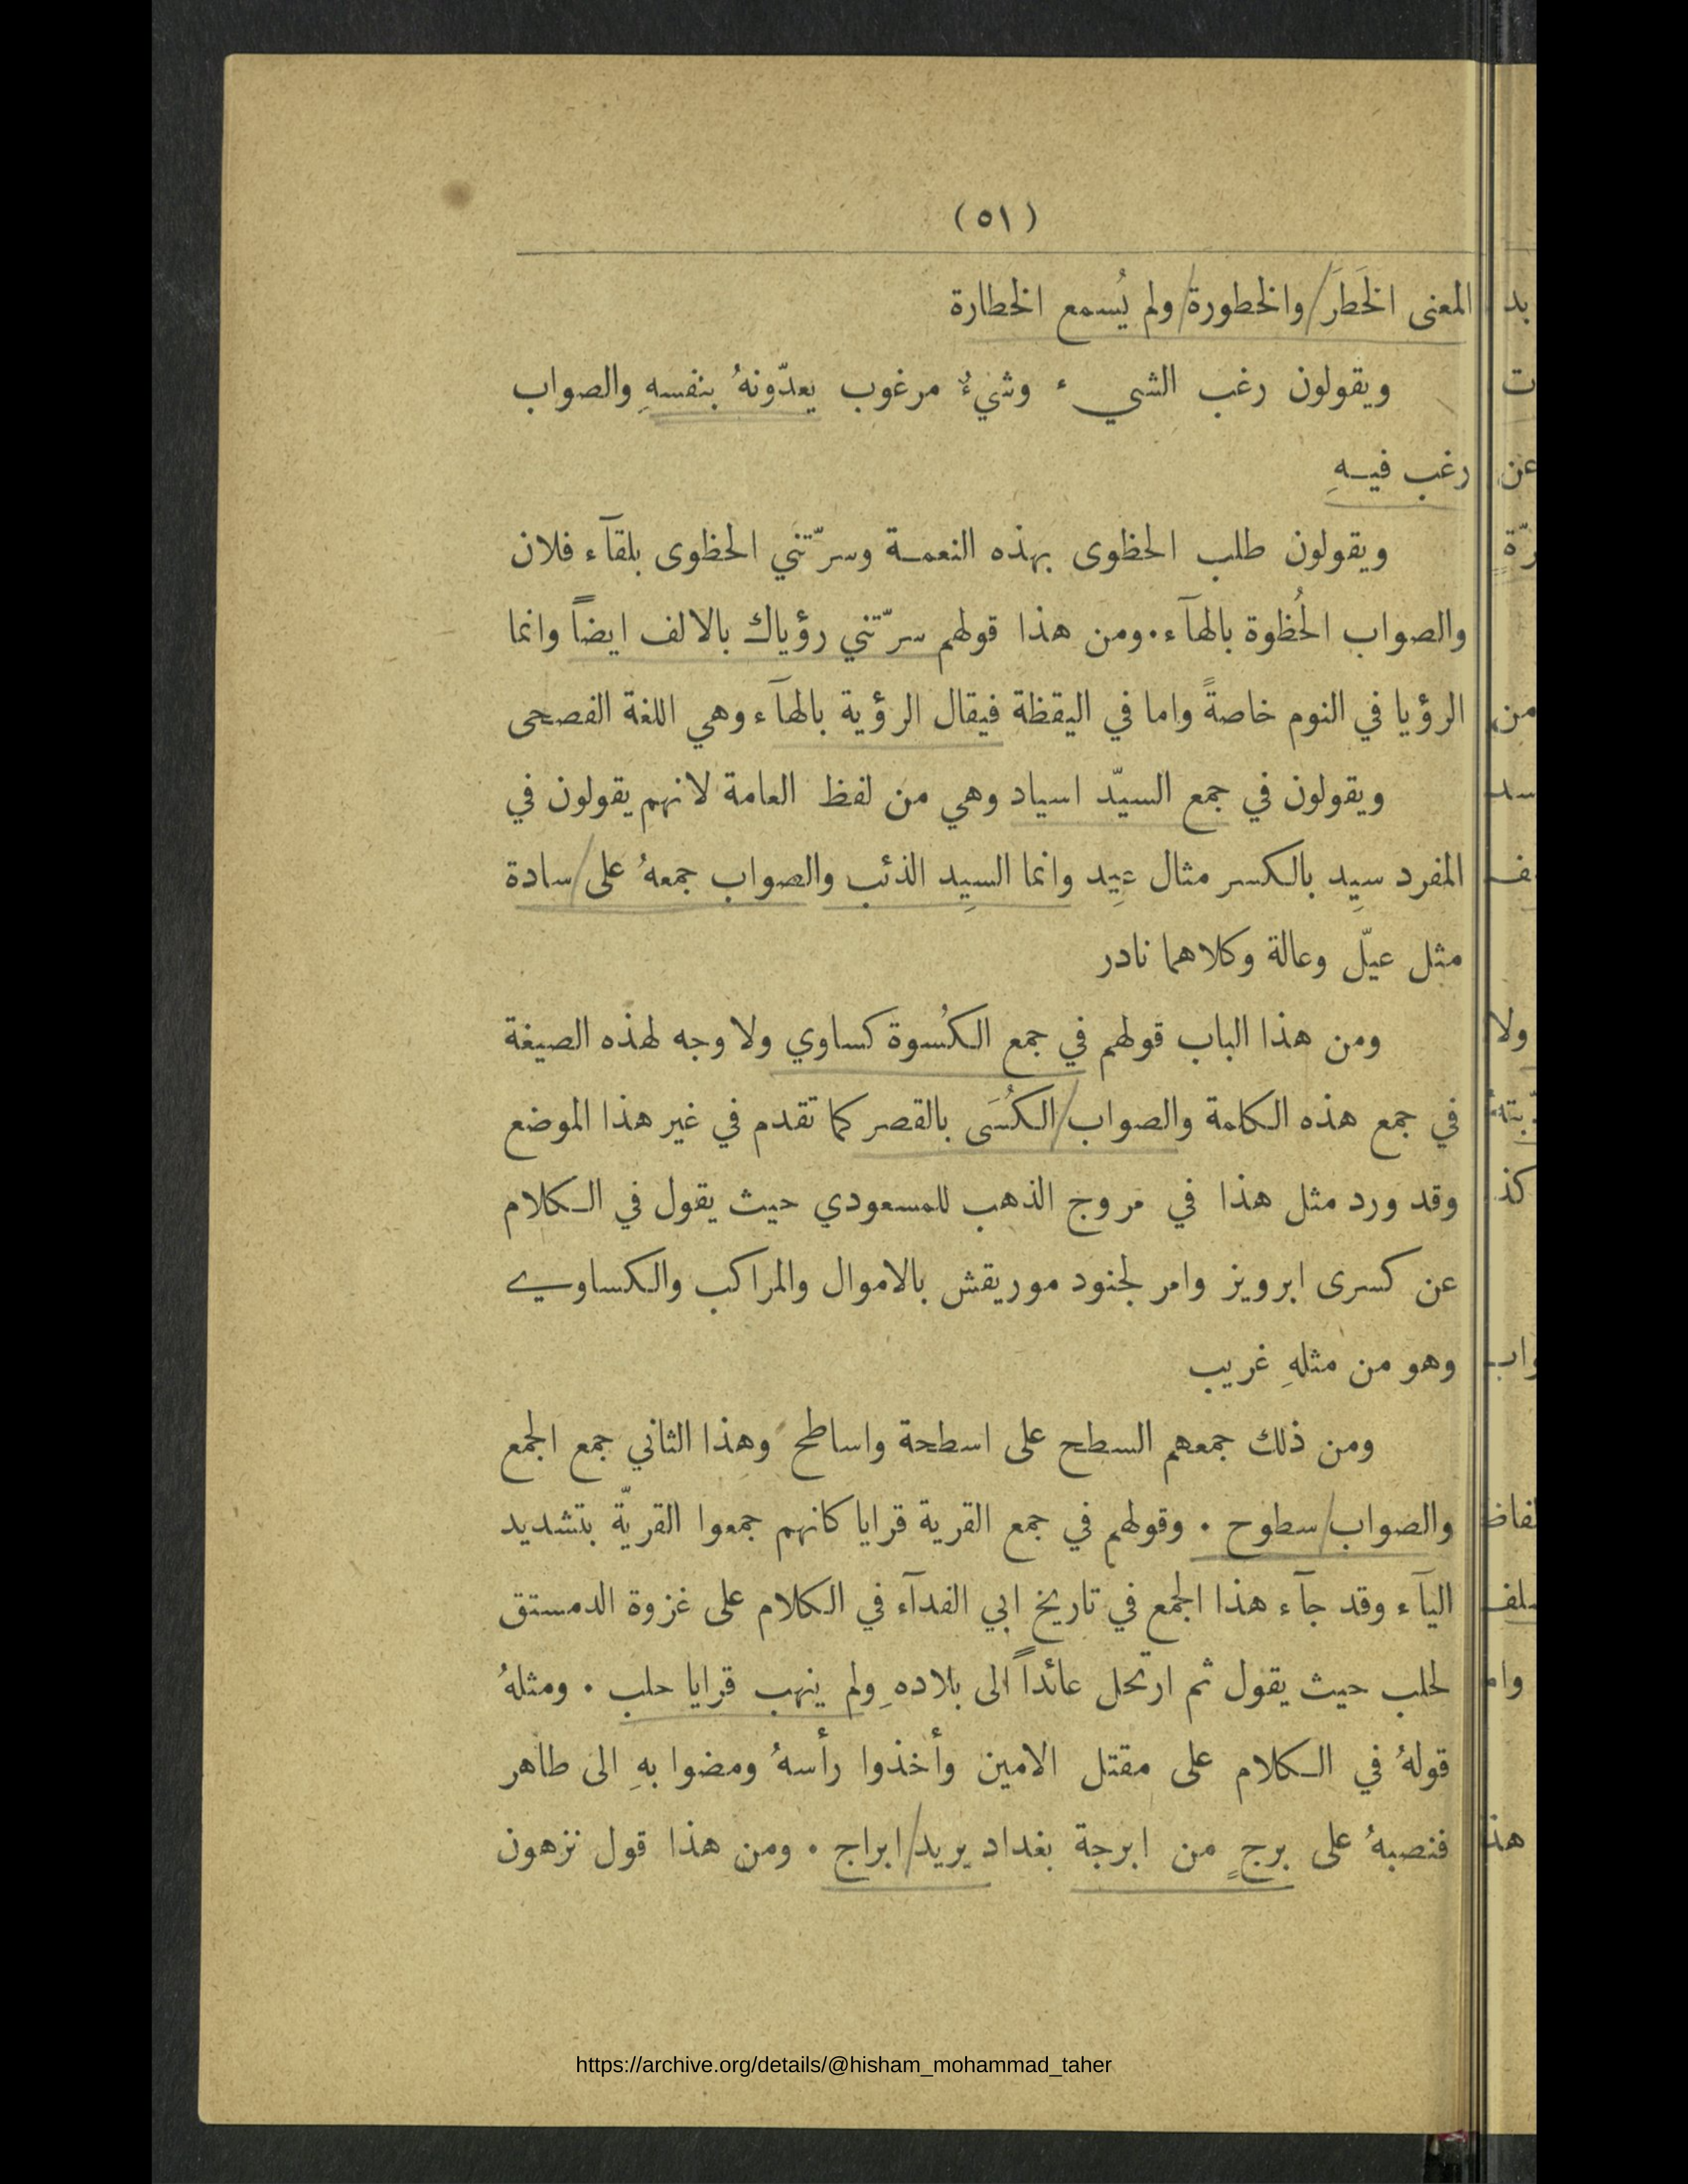 (٥١)
المعنى الخَطَرَ والخطورة ولم يُسمع الخطارة
ويقولون رغب الشيء وشيءٌ مرغوب يعدّونهُ بنفسهِ والصواب
رغب فيهِ
ويقولون طلب الحظوى بهذه النعمة وسرّتني الحظوى بلقآء فلان
والصواب الحُظوة بالهآء. ومن هذا قولهم سرّتني رؤياك بالالف ايضاً وانما
الرؤيا في النوم خاصةً واما في اليقظة فيقال الرؤية بالهآء وهي اللغة الفصحى
ويقولون في جمع السيّد اسياد وهي من لفظ العامة لانهم يقولون في
المفرد سِيد بالكسر مثال عِيد وانما السِيد الذئب والصواب جمعهُ على سادة
مثل عيّل وعالة وكلاهما نادر
ومن هذا الباب قولهم في جمع الكُسوة كساوي ولا وجه لهذه الصيغة
في جمع هذه الكلمة والصواب الكُسَى بالقصر كما تقدم في غير هذا الموضع
وقد ورد مثل هذا في مروج الذهب للمسعودي حيث يقول في الكلام
عن كسرى ابرويز وامر لجنود موريقش بالاموال والمراكب والكساوي
وهو من مثلهِ غريب
ومن ذلك جمعهم السطح على اسطحة واساطح وهذا الثاني جمع الجمع
والصواب سطوح . وقولهم في جمع القرية قرايا كانهم جمعوا القريّة بتشديد
اليآء وقد جآء هذا الجمع في تاريخ ابي الفدآء في الكلام على غزوة الدمستق
لحلب حيث يقول ثم ارتحل عائداً الى بلاده ِ ولم ينهب قرايا حلب . ومثلهُ
قولهُ في الكلام على مقتل الامين وأخذوا رأسهُ ومضوا بهِ الى طاهر
فنصبهُ على برجٍ من ابرجة بغداد يريد ابراج . ومن هذا قول نزهون
https://archive.org/details/@hisham_mohammad_taher